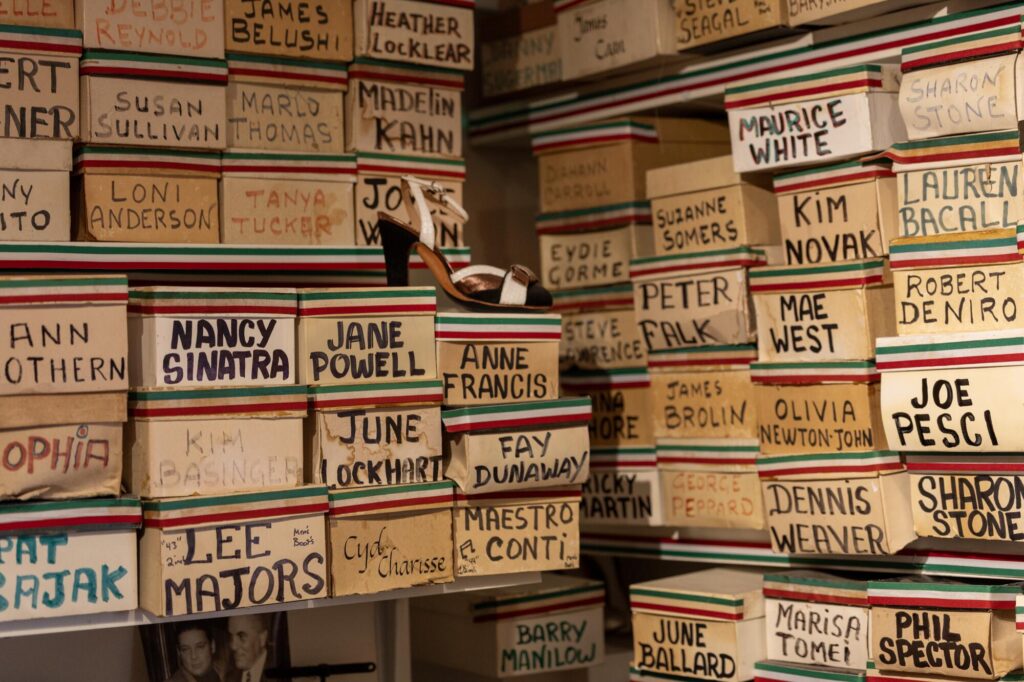 DEBBIE
REYNOLD
JAMES
BELUSHI
HEATHER
LOCKLEAR
SUSAN
SULLIVAN
MARLO
THOMAS
MADELIN
KAHN
LONI
ANDERSON
TANYA
TUCKER
ANN
OTHERN
NANCY
SINATRA
JANE
POWELL
ANNE
FRANCIS
OPHIA
KIM
BASINGER
JUNE
LOCKHART
FAY
DUNAWAY
PAT
SAJAK
"43"
LEE
MAJORS
Cyd
Charisse
MAESTRO
CONTI
BARRY
MANILOW
James
Caan
STEVE
SEAGAL
SHARON
STONE
MAURICE
WHITE
DIAHANN
CARROLL
SUZANNE
SOMERS
KIM
NOVAK
LAUREN
BACALL
EYDIE
GORME
PETER
FALK
MAE
WEST
ROBERT
DENIRO
STEVE
JAMES
BROLIN
OLIVIA
NEWTON-JOHN
JOE
PESCI
RICKY
MARTIN
GEORGE
PEPPARD
DENNIS
WEAVER
SHARON
STONE
JUNE
BALLARD
MARISA
TOMEI
PHIL
SPECTOR